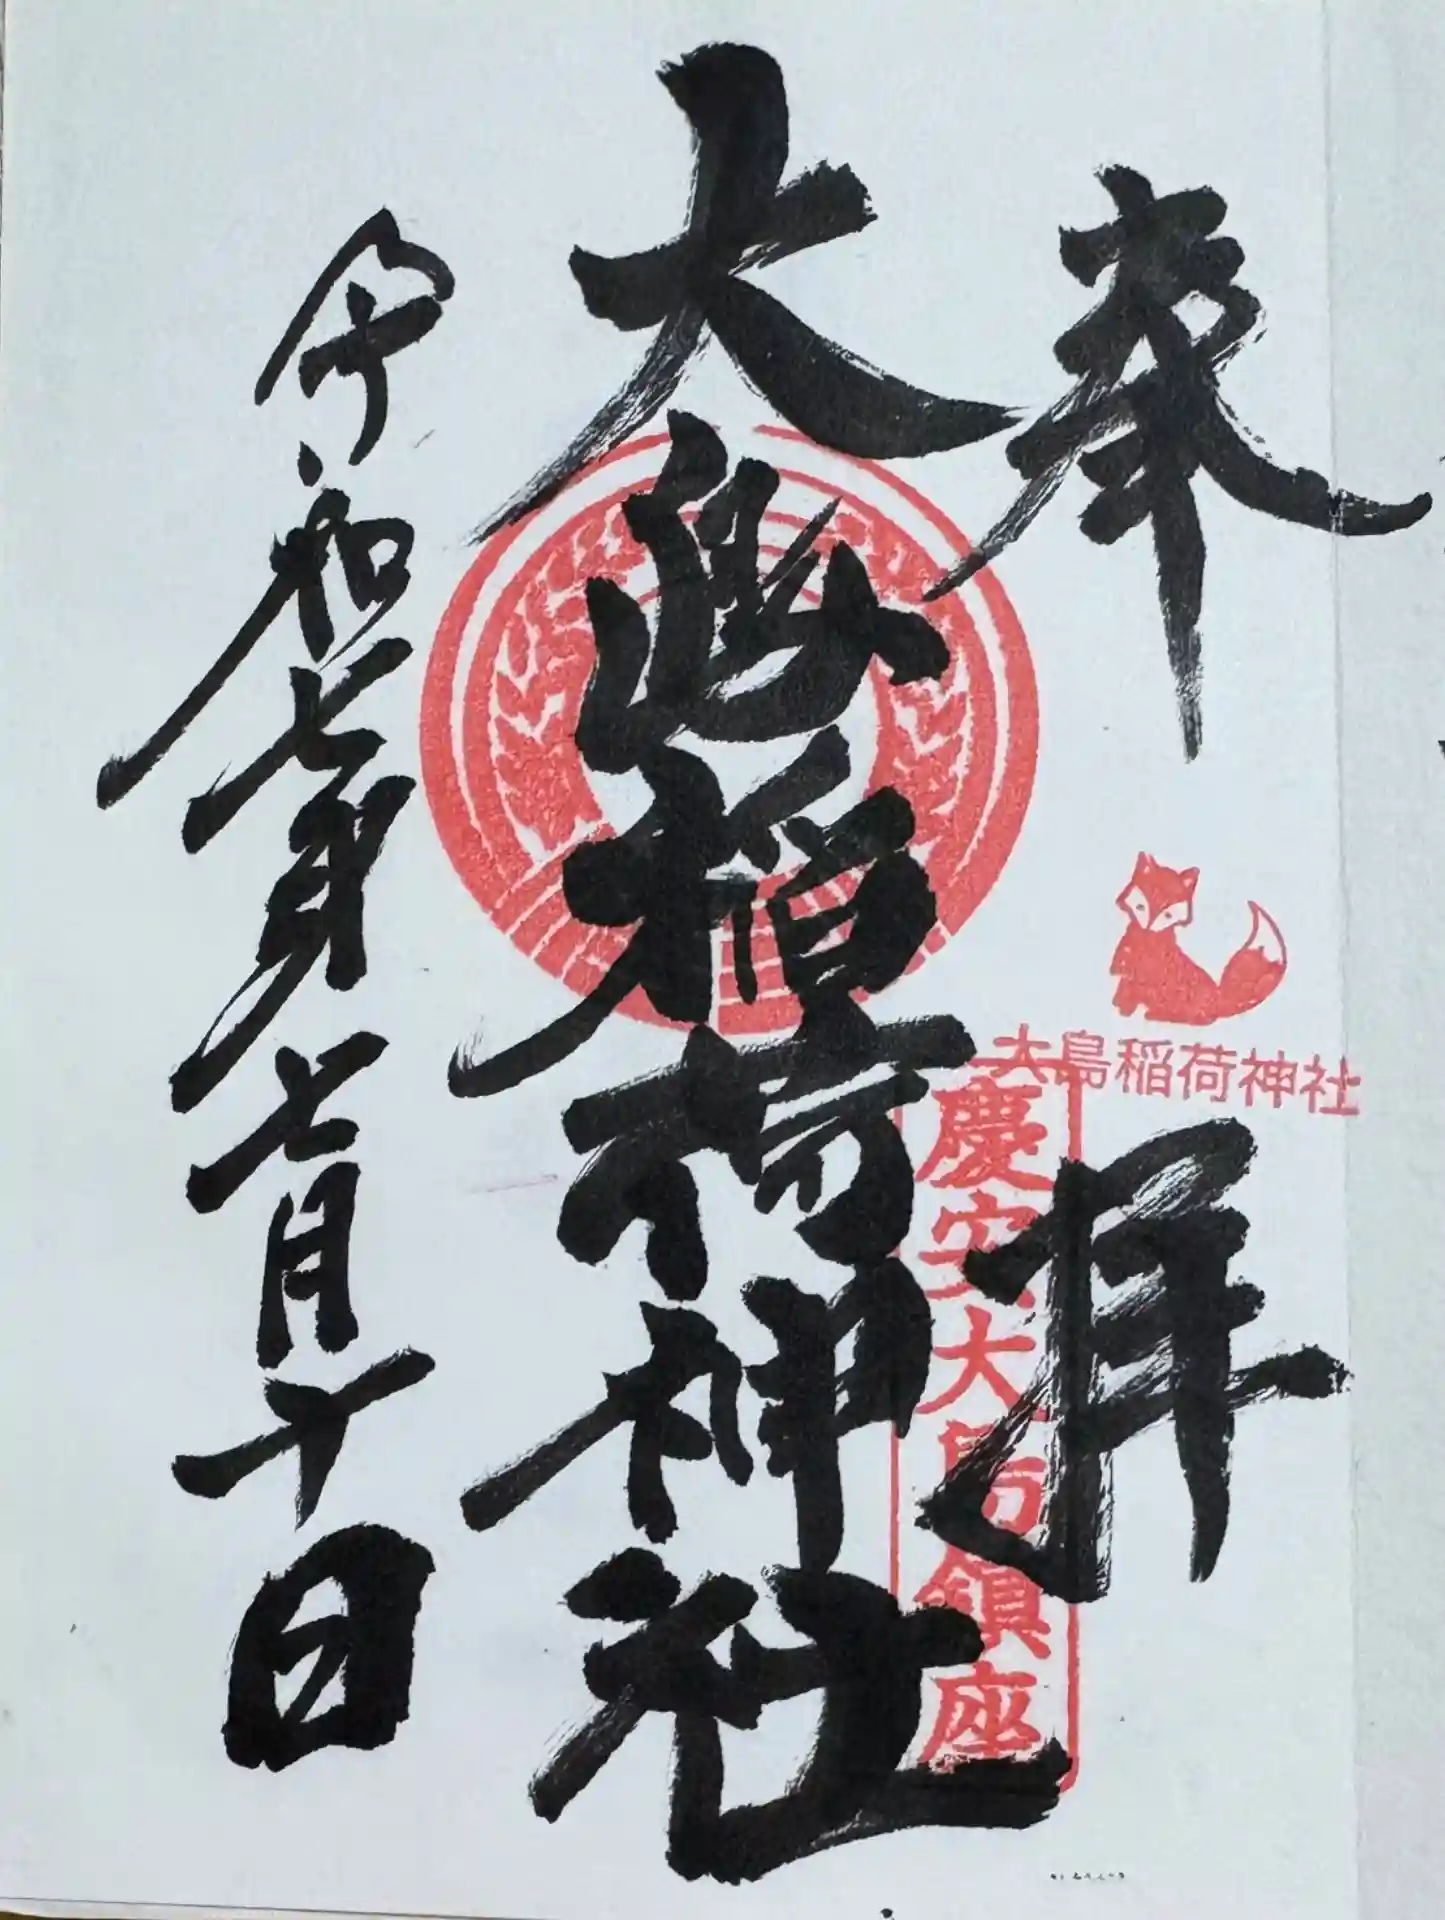 奉拝
大島稲荷神社
慶安大島鎮座
大島稲荷神社
令和七年七月十日